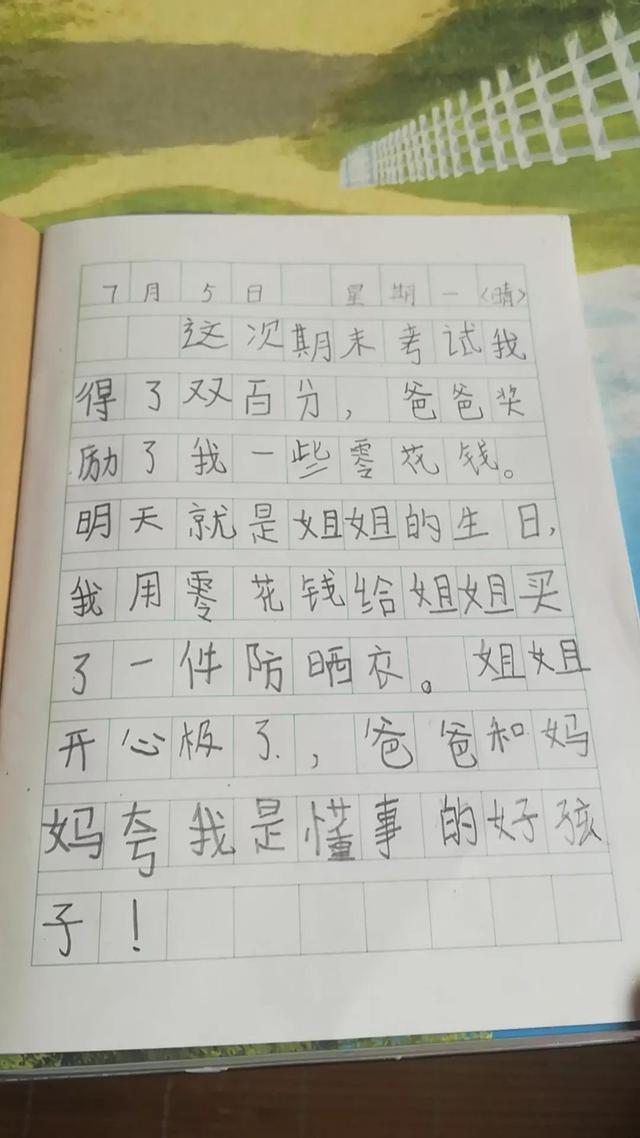 7月5日 星期一〈晴〉
这次期末考试我
得了双百分，爸爸奖
励了我一些零花钱。
明天就是姐姐的生日，
我用零花钱给姐姐买
了一件防晒衣。姐姐
开心极了，爸爸和妈
妈夸我是懂事的好孩
子！